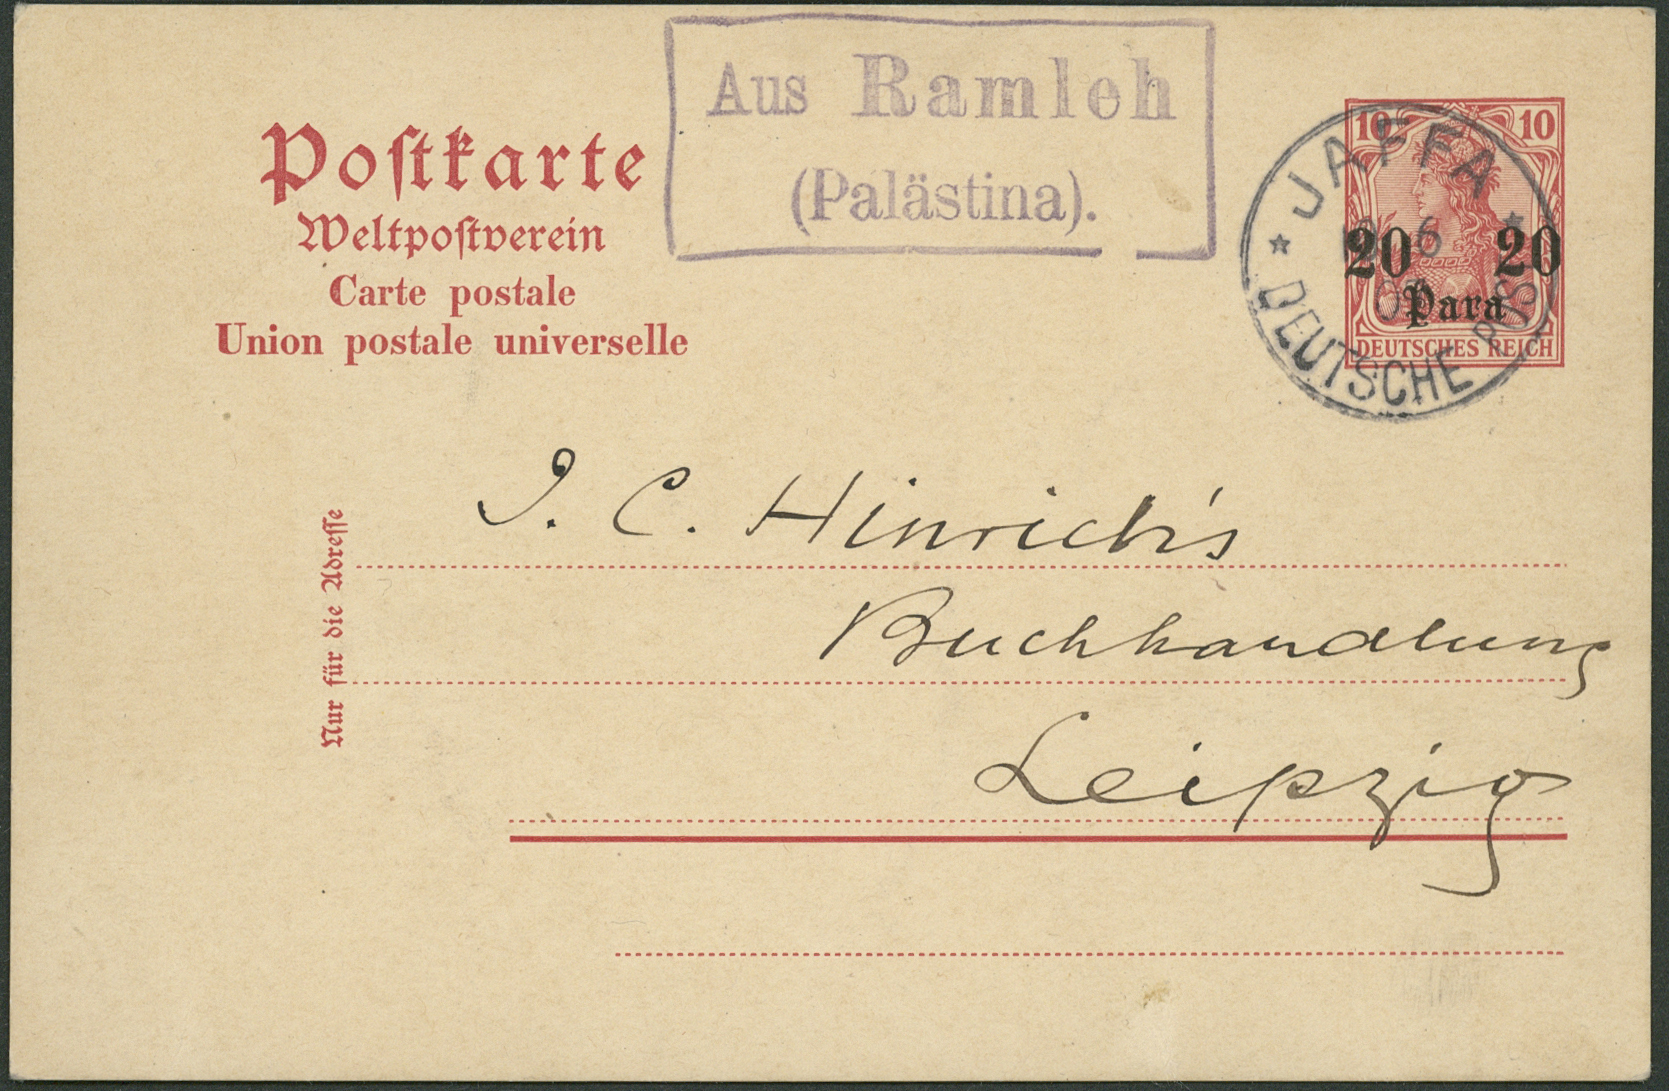 Aus Ramleh
(Palästina).
Poſtkarte
Weltpoſtverein
Carte postale
Union postale universelle
10 10
20 20
Para
DEUTSCHES REICH
JAFFA
DEUTSCHE POST
J. C. Hinrich's
Buchhandlung
Leipzig
Nur für die Adreſſe